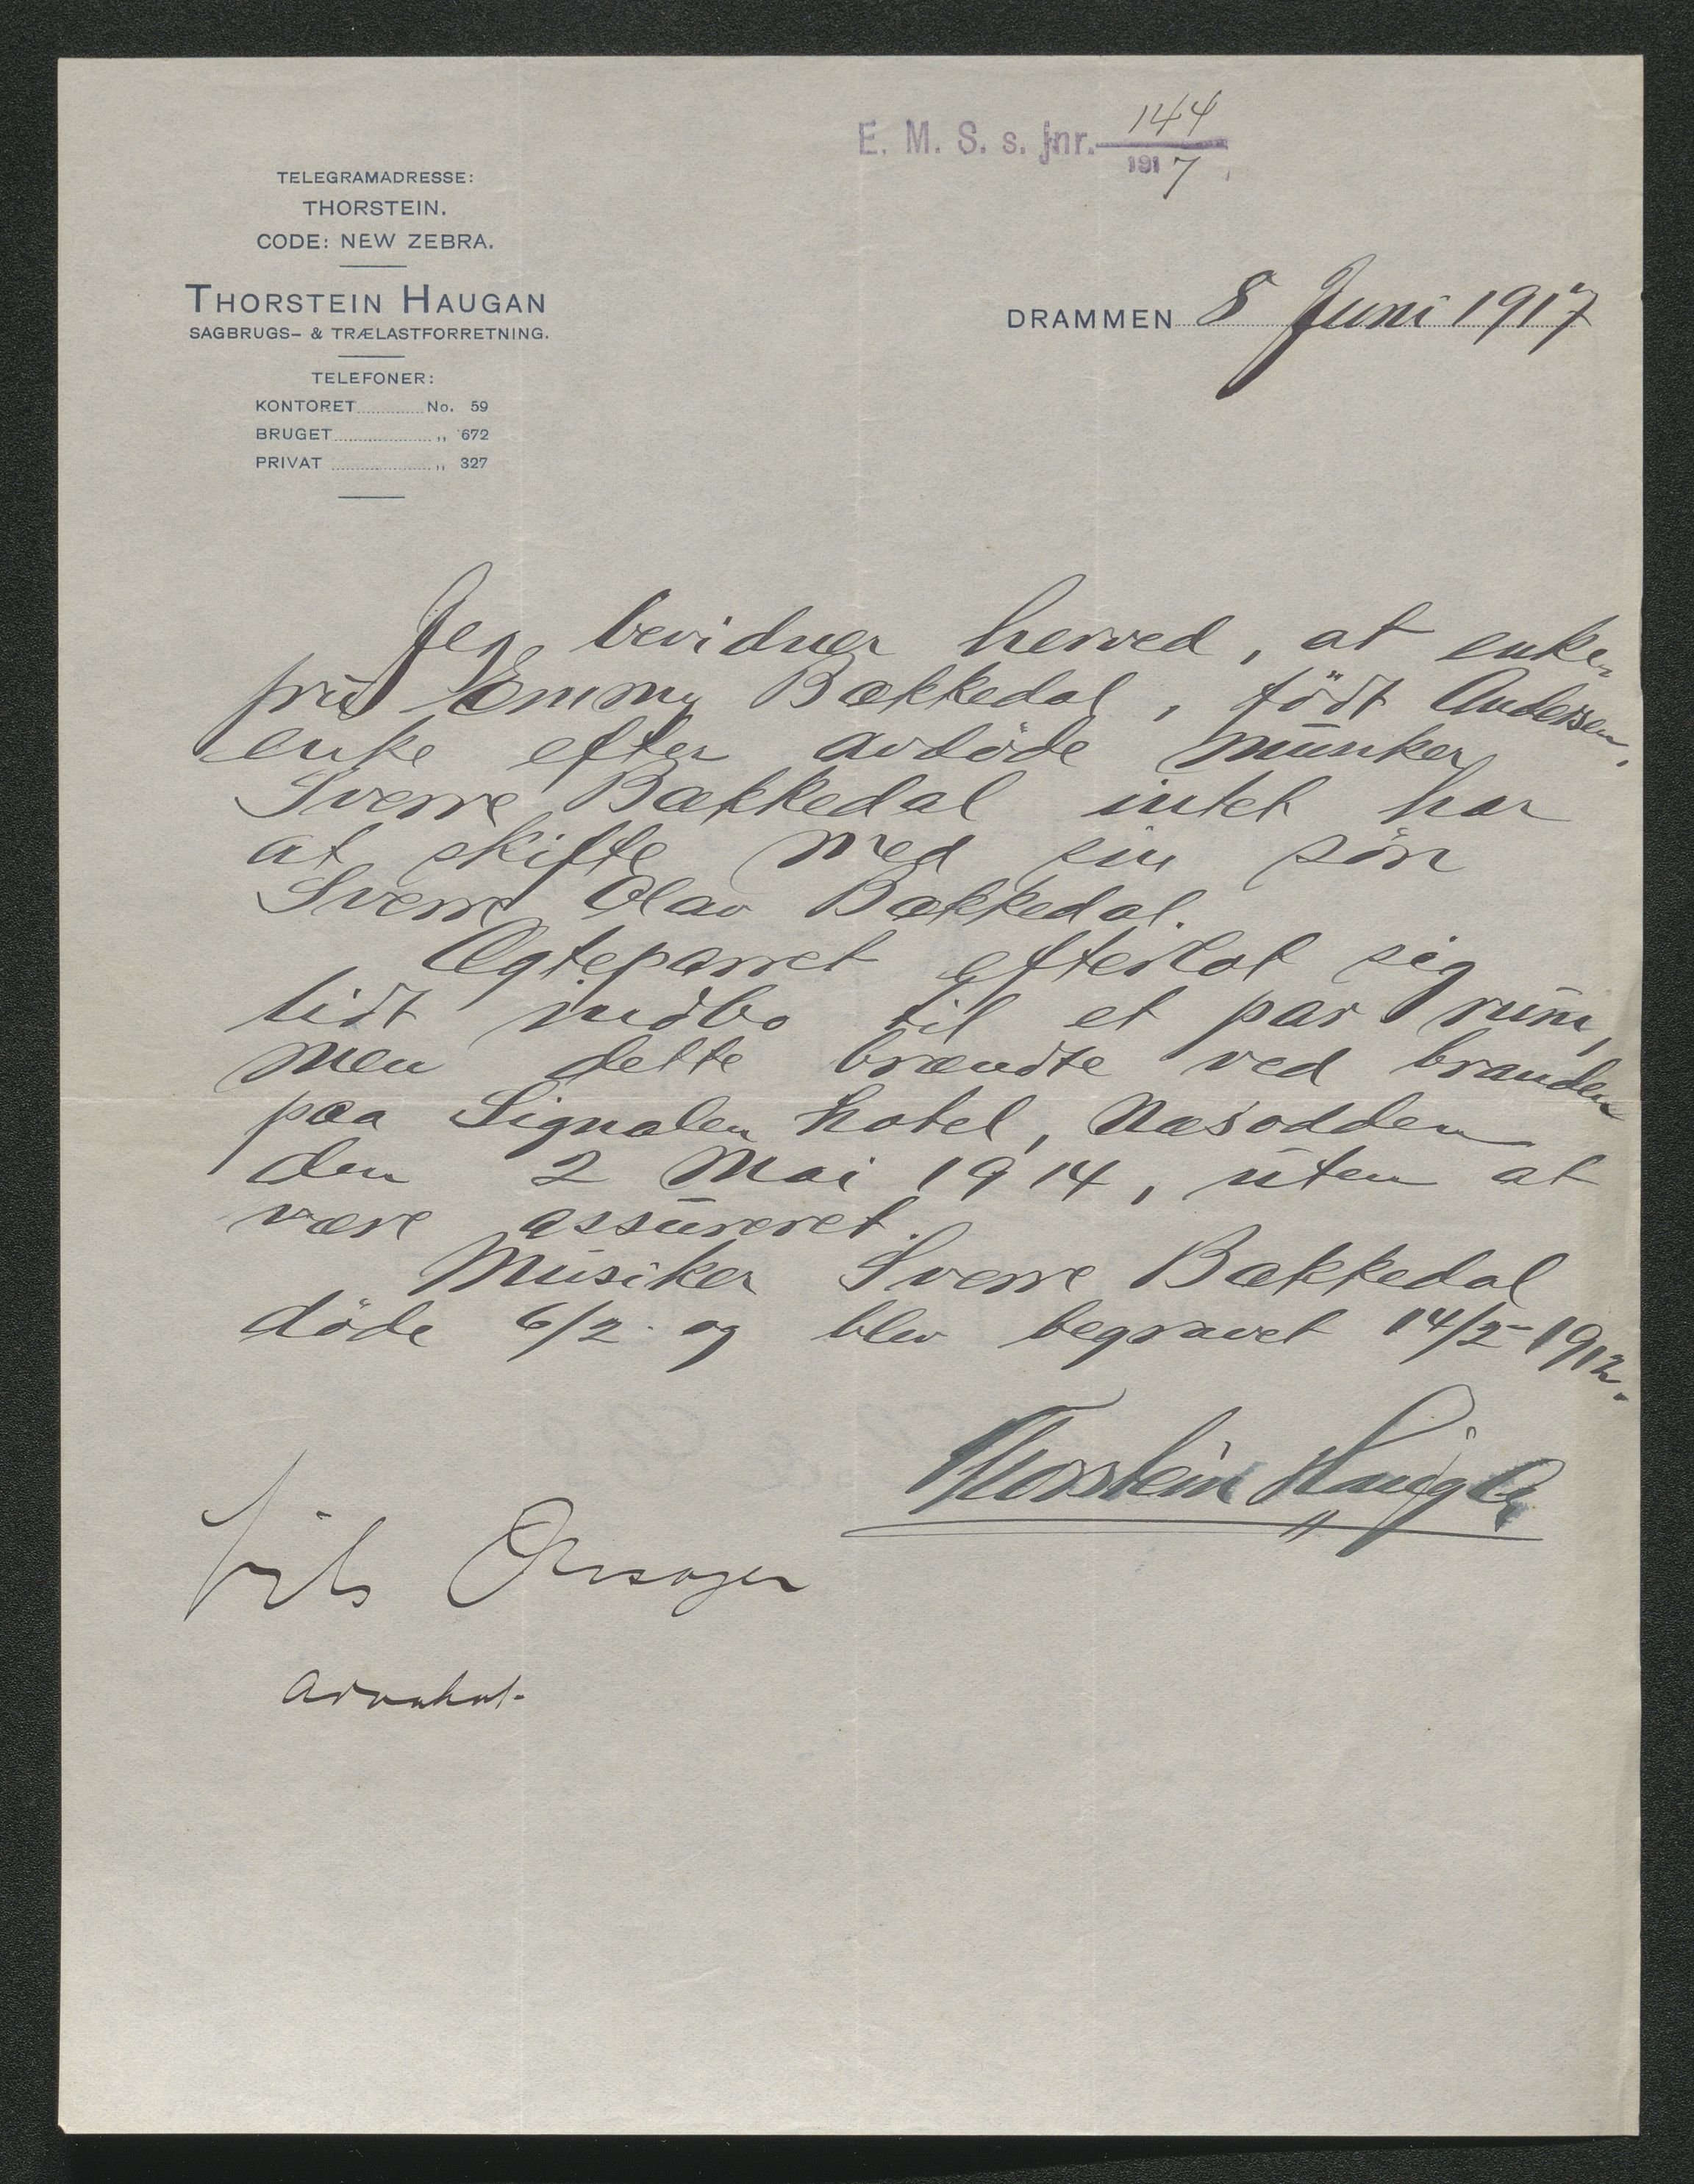 E. M. S. s. jnr. 144
1917
TELEGRAMADRESSE:
THORSTEIN.
CODE: NEW ZEBRA.
THORSTEIN HAUGAN
SAGBRUGS- & TRÆLASTFORRETNING.
TELEFONER:
KONTORET No. 59
BRUGET „ 672
PRIVAT „ 327
DRAMMEN 8 Juni 1917
Jeg bevidner herved, at enke-
frü Emmy Bækkedal, födt Andersen,
enke efter avdöde müsiker
Sverre Bækkedal intet har
at skifte med sin sön
Sverre Olav Bækkedal.
Ægteparret efterlot sig
lidt indbo til et par rüm,
men dette brændte ved branden
paa Signalen hotel, Næsodden
den 2 Mai 1914, üten at
være assüreret.
Müsiker Sverre Bækkedal
döde 6/2 og blev begravet 14/2-1912.
Thorstein Haugan
advokat.